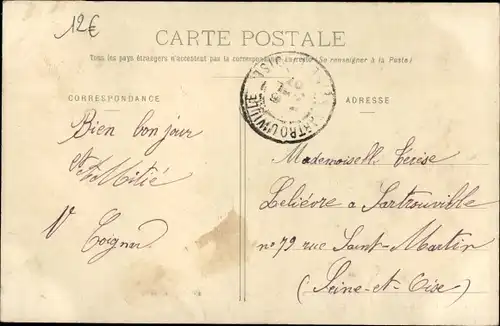 12€
CARTE POSTALE
Tous les pays étrangers n'acceptent pas la correspondance au recto. (Se renseigner à la Poste)
CORRESPONDANCE
ADRESSE
SARTROUVILLE
Bien bonjour
et Amitié
V Coignard
Mademoiselle
Lelièvre a Sartrouville
n° 79 rue Saint-Martin
(Seine-et-Oise)